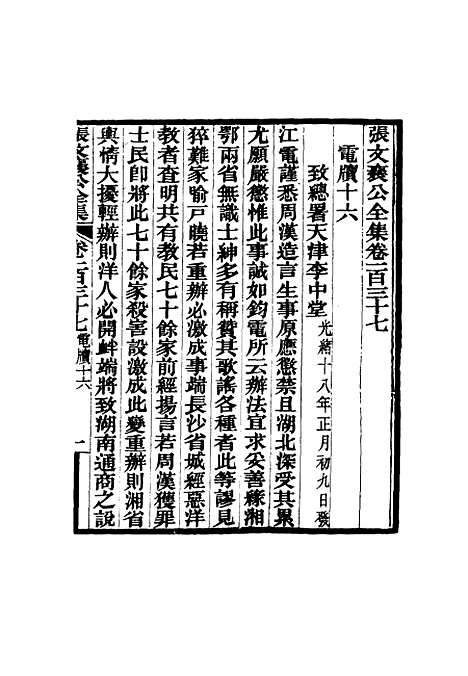 張文襄公全集卷一百三十七
電牘十六
致總署天津李中堂 光緒十八年正月初九日發
江電謹悉周漢造言生事原應懲禁且湖北深受其累
尤願嚴懲惟此事誠如鈞電所云辦法宜求妥善緣湘
鄂兩省無識士紳多有稱贊其歌謠各種者此等謬見
猝難家喻戶曉若重辦必激成事端長沙省城經惡洋
教者查明共有教民七十餘家前經揚言若周漢獲罪
士民卽將此七十餘家殺害設激成此變重辦則湘省
輿情大擾輕辦則洋人必開釁端將致湖南通商之說
張文襄公全集 卷一百三十七 電牘十六 一